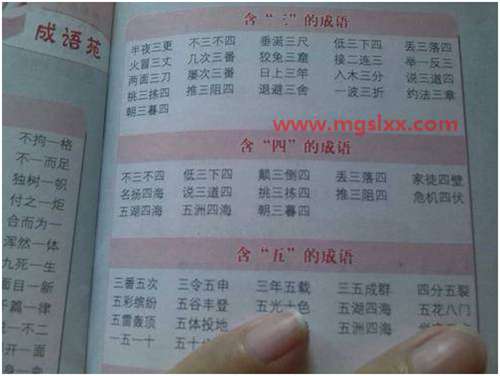 成语苑
不拘一格
不一而足
独树一帜
付之一炬
合而为一
浑然一体
九死一生
目一新
篇一律
一不二
开一面
一身一命
含“三”的成语
半夜三更 不三不四 垂涎三尺 低三下四 丢三落四
火冒三丈 几次三番 狡兔三窟 接二连三 举一反三
两面三刀 屡次三番 日上三竿 入木三分 说三道四
挑三拣四 推三阻四 退避三舍 一波三折 约法三章
朝三暮四
www.mgslxx.com
含“四”的成语
不三不四 低三下四 颠三倒四 丢三落四 家徒四壁
名扬四海 说三道四 挑三拣四 推三阻四 危机四伏
五湖四海 五洲四海 朝三暮四
含“五”的成语
三番五次 三令五申 三年五载 三五成群 四分五裂
五彩缤纷 五谷丰登 五光十色 五湖四海 五花八门
五雷轰顶 五体投地 五洲四海
一五一十 五十